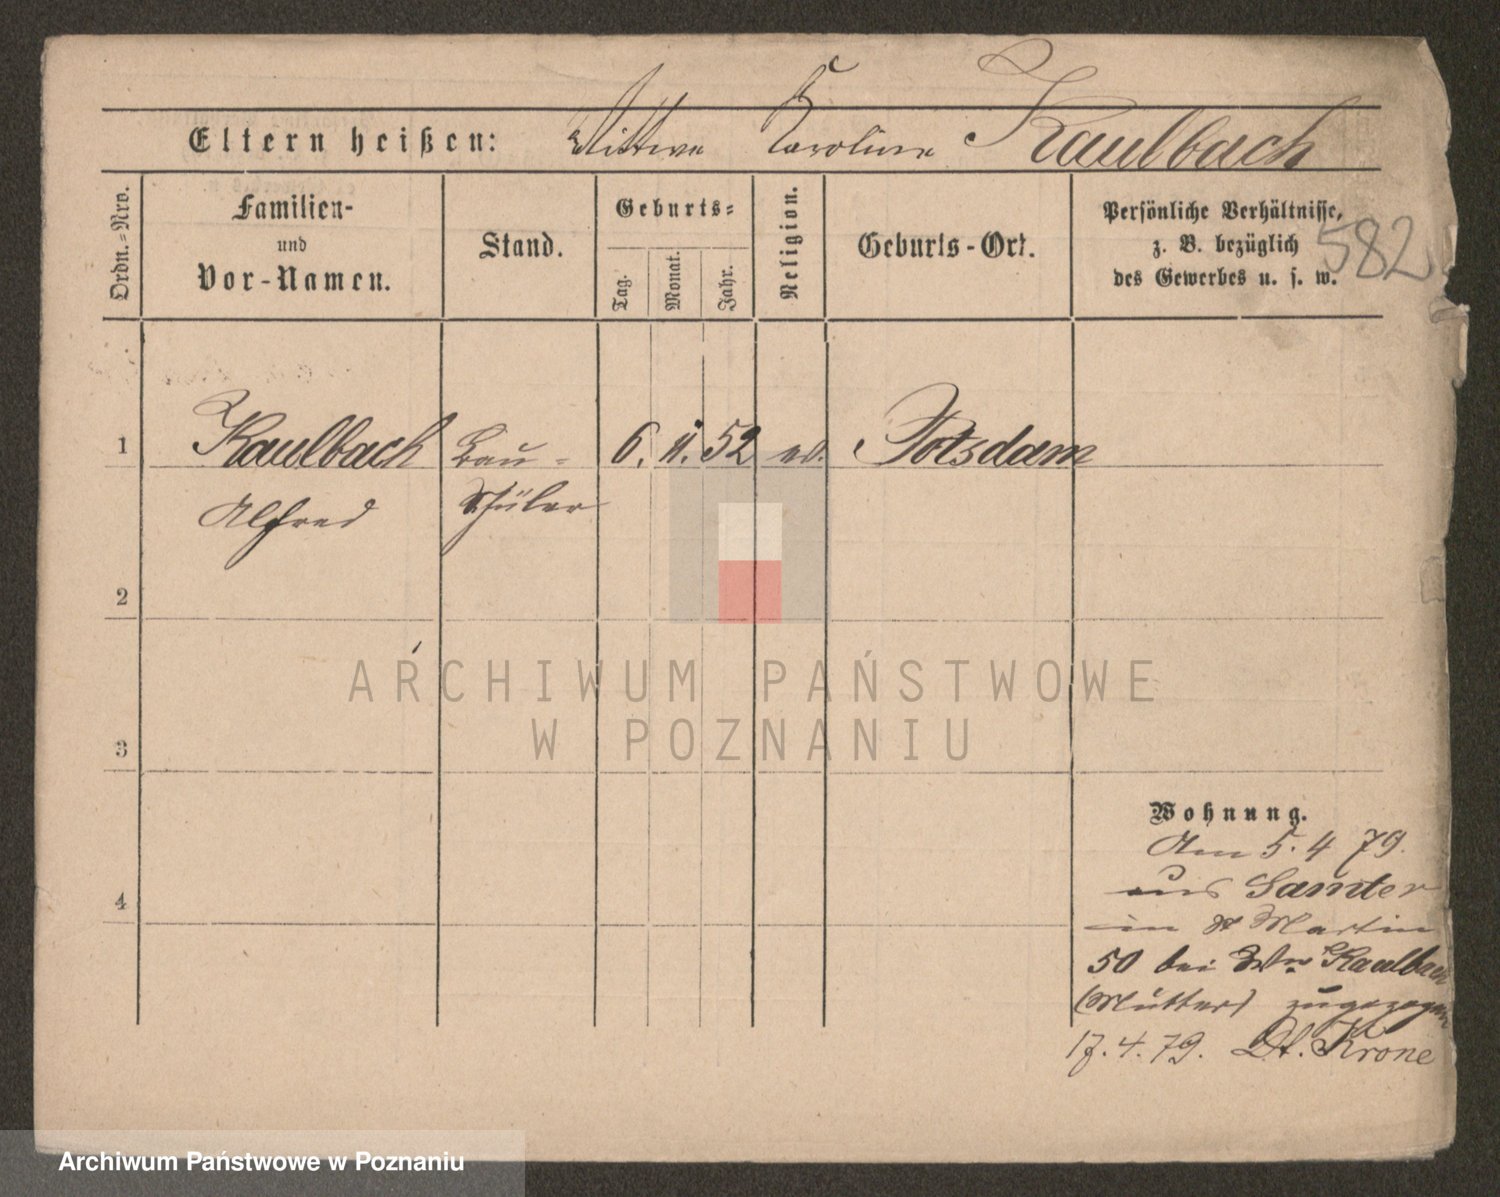 Eltern heißen: Wittwe Karoline Kaulbach
Ordn.=Nro.
Familien-
und
Vor-Namen.
Stand.
Geburts=
Tag.
Monat.
Jahr.
Religion.
Geburts-Ort.
Persönliche Verhältnisse,
z. B. bezüglich
des Gewerbes u. s. w.
582
1 Kaulbach Bau- 6. 52 ev. Potsdam
Alfred Schüler
2
3
4
Wohnung.
Am 5. 4 79.
aus Samter
in St Martin
50 bei Ww Kaulbach
(Mutter) zugezogen
17. 4. 79. Dt. Krone
ARCHIWUM PAŃSTWOWE
W POZNANIU
Archiwum Państwowe w Poznaniu